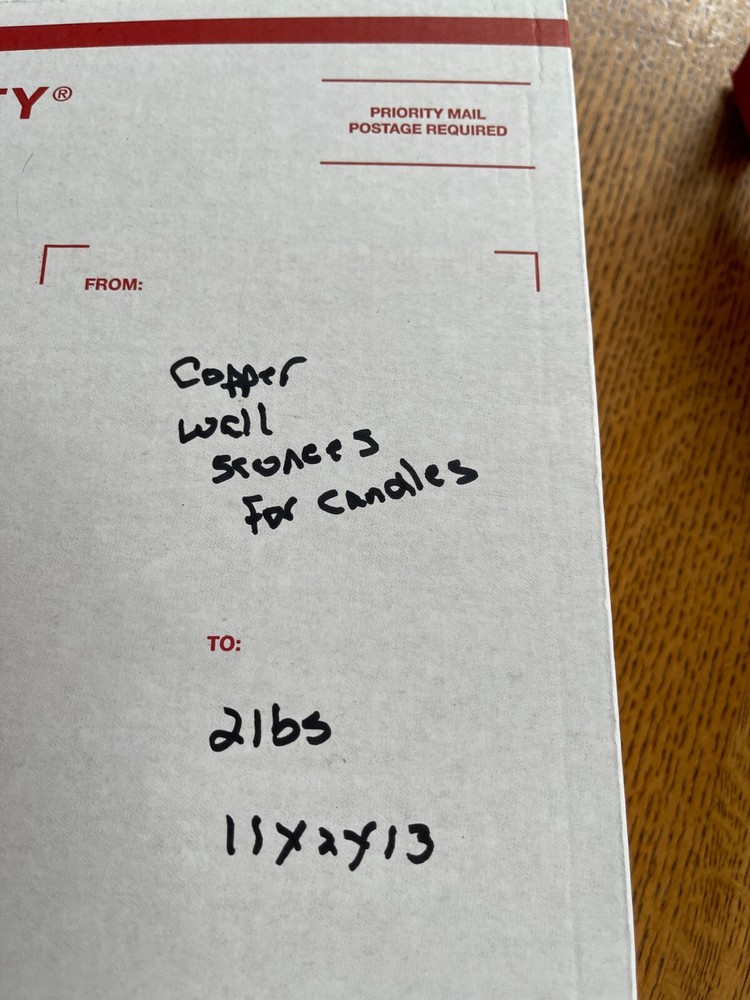 TY®
PRIORITY MAIL
POSTAGE REQUIRED
FROM:
Copper
wall
sconces
For candles
TO:
2lbs
11X2X13